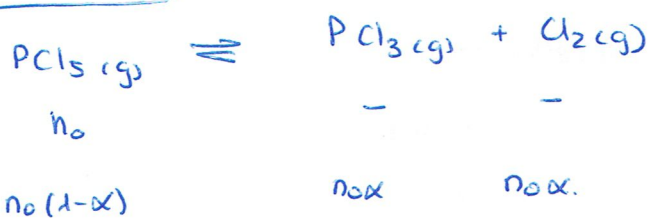 PCl5 (g) ⇌ PCl3 (g) + Cl2 (g)
n0 - -
n0 (1-α) n0α n0α.